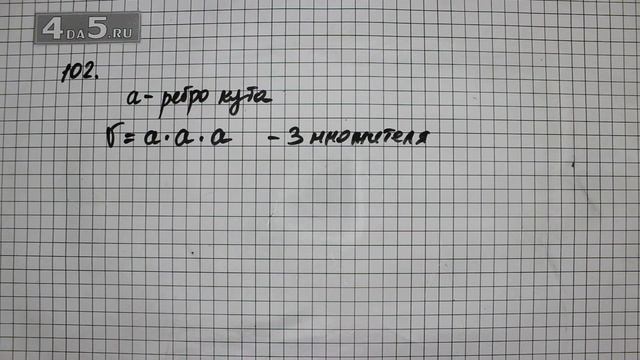 4DA5.RU
102.
a - ребро куба
V = a · a · a - 3 множителя